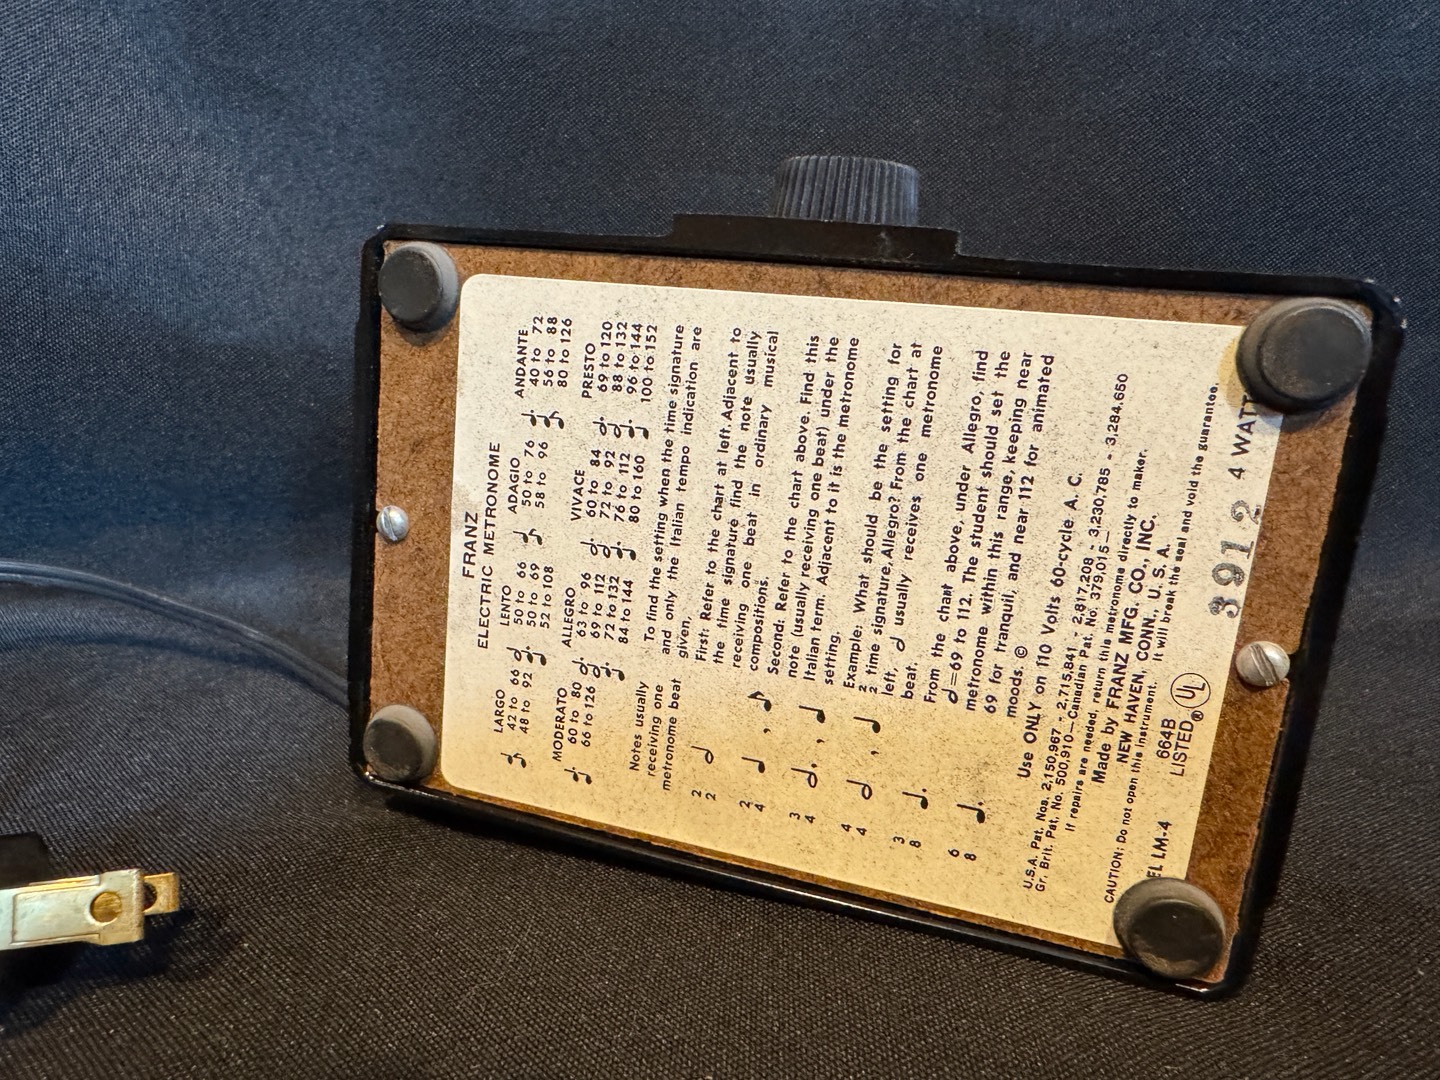 FRANZ
ELECTRIC METRONOME
LARGO
42 to 66
48 to 92
LENTO
50 to 66
50 to 69
52 to 108
ADAGIO
50 to 76
58 to 96
ANDANTE
40 to 72
56 to 88
80 to 126
MODERATO
60 to 80
66 to 126
ALLEGRO
63 to 96
69 to 112
72 to 132
84 to 144
VIVACE
60 to 84
72 to 92
76 to 112
80 to 160
PRESTO
69 to 120
88 to 132
96 to 144
100 to 152
Notes usually
receiving one
metronome beat
2 2
2 4
3 4
4 4
3 8
6 8
To find the setting when the time signature
and only the Italian tempo indication are
given,
First: Refer to the chart at left. Adjacent to
the time signature find the note usually
receiving one beat in ordinary musical
compositions.
Second: Refer to the chart above. Find this
note (usually receiving one beat) under the
Italian term. Adjacent to it is the metronome
setting.
Example: What should be the setting for
2 2 time signature, Allegro? From the chart at
left, 𝅗𝅥 usually receives one metronome
beat.
From the chart above, under Allegro, find
𝅗𝅥=69 to 112. The student should set the
metronome within this range, keeping near
69 for tranquil, and near 112 for animated
moods. ©
Use ONLY on 110 Volts 60-cycle A. C.
U.S.A. Pat. Nos. 2,150,967 - 2,715,841 - 2,817,208 - 3,230,785 - 3,284,650
Gr. Brit. Pat. No. 500,910—Canadian Pat. No. 379,015—
If repairs are needed, return this metronome directly to maker.
Made by FRANZ MFG. CO., INC.
NEW HAVEN, CONN., U. S. A.
CAUTION: Do not open this instrument. It will break the seal and void the guarantee.
EL LM-4
664B
LISTED ® UL
3912
4 WATT